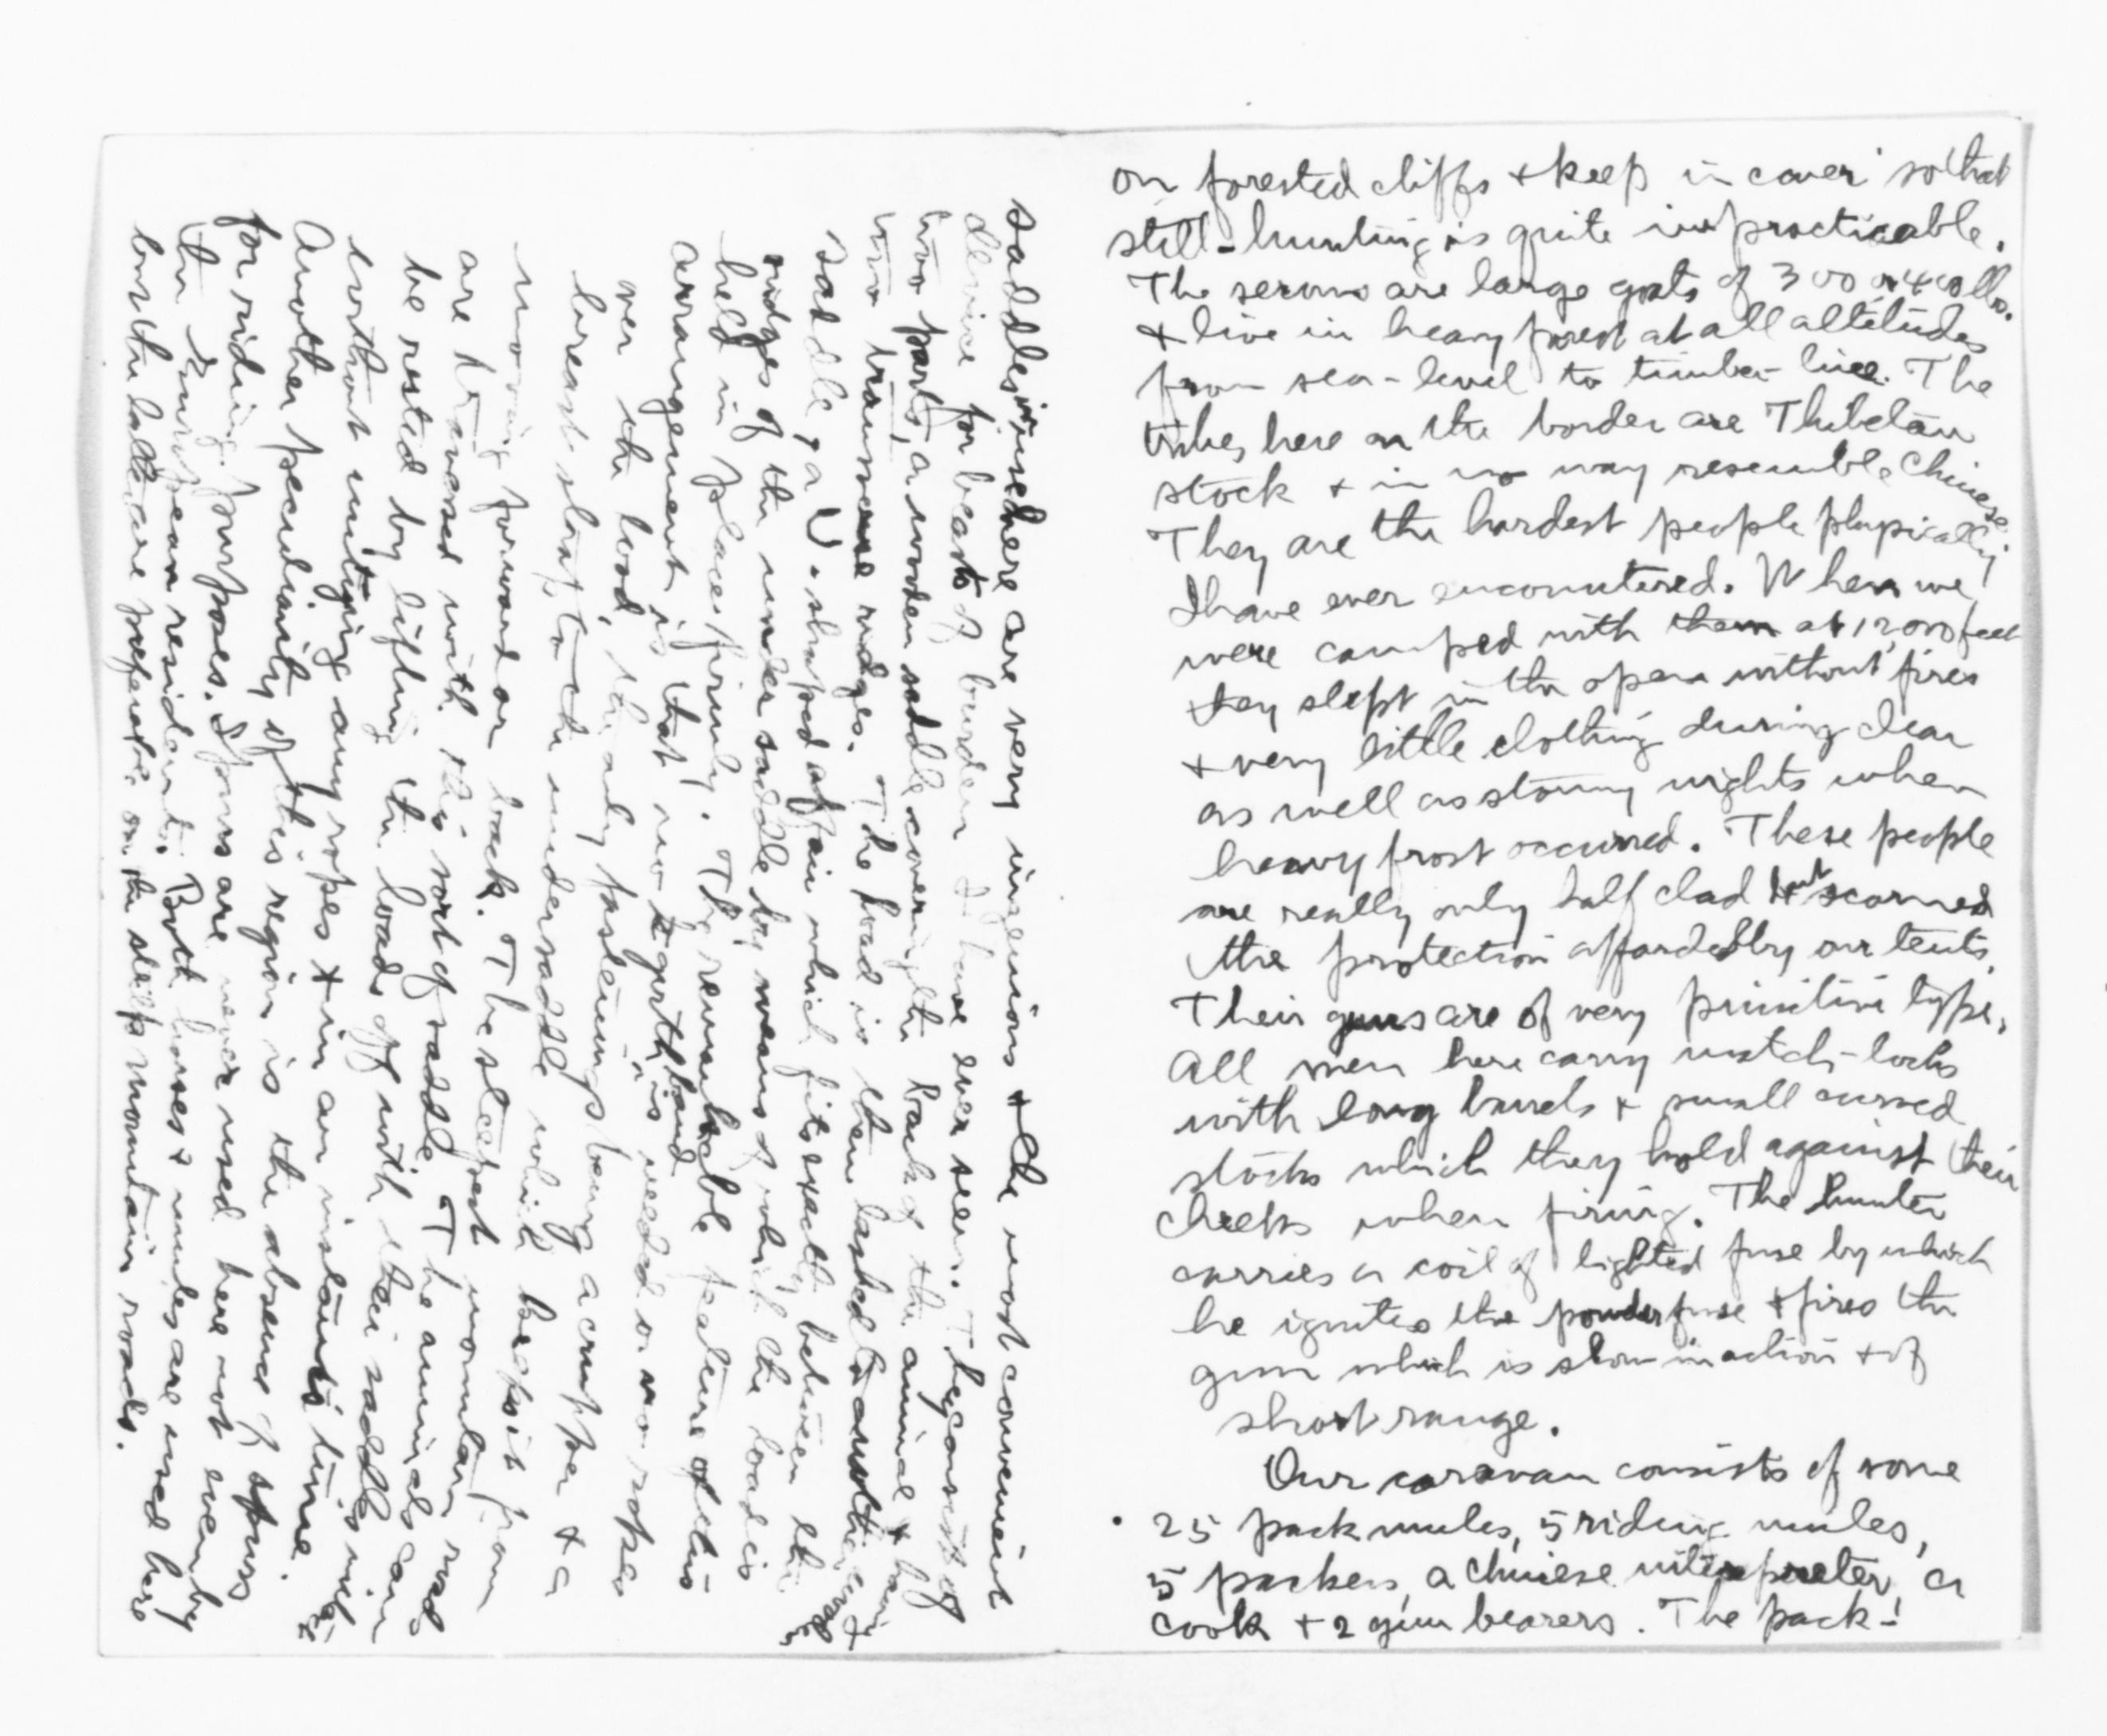 on forested cliffs + keep in cover so that
still-hunting is quite impracticable.
The serows are large goats of 300 or 400 lbs.
+ live in heavy forest at all altitudes
from sea-level to timber-line. The
tribes here on the border are Thibetan
stock + in no way resemble Chinese.
They are the hardest people physically
I have ever encountered. When we
were camped with them at 12,000 feet
they slept in the open without fires
+ very little clothing during clear
as well as stormy nights when
heavy frost occurred. These people
are really only half clad but scorned
the protection afforded by our tents.
Their guns are of very primitive type.
All men here carry match-locks
with long barrels + small curved
stocks which they hold against their
cheeks when firing. The hunter
carries a coil of lighted fuse by which
he ignites the powder fuse + fires the
gun which is slow in action + of
short range.
Our caravan consists of some
25 pack mules, 5 riding mules,
5 packers, a Chinese interpreter, a
cook + 2 gun bearers. The pack-
saddles used here are very ingenious + the most convenient
device for beasts of burden I have ever seen. They consist of
two parts, a wooden saddle covering the back of the animal + having
two transverse ridges. The load is then lashed to another
saddle, a U-shaped affair which fits exactly between the
ridges of the under saddle by means of which the load is
held in place firmly. The remarkable feature of this
arrangement is that no girth band is needed or no ropes
over the load, the only fastenings being a crupper + a
breast strap to the undersaddle which keeps it from
moving forward or back. The steepest mountain roads
are traversed with this sort of saddle. The animals can
be rested by lifting the loads off with their saddles
without untying any ropes + in an instant's time.
Another peculiarity of this region is the absence of spurs
for riding purposes. Spurs are never used here not even by
the European residents. Both horses + mules are used here
but the latter are preferable on the steep mountain roads.